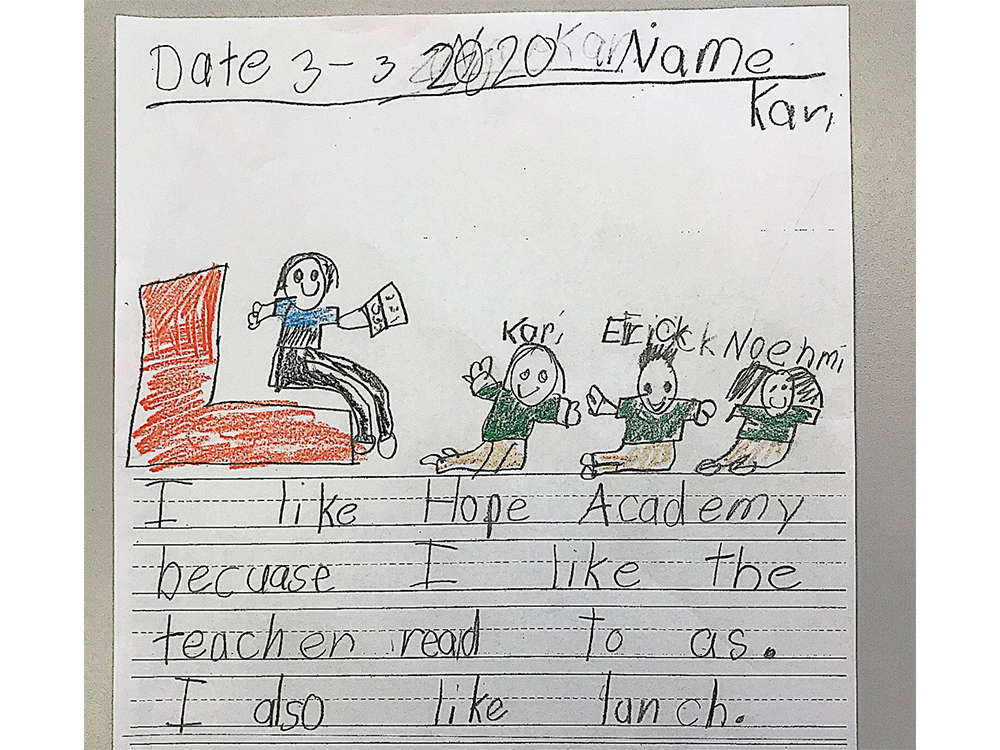 Date 3-3 2020 Name
Kari
Kari Erickck Noehmi
I like Hope Academy
becuase I like the
teacher read to as.
I also like lunch.